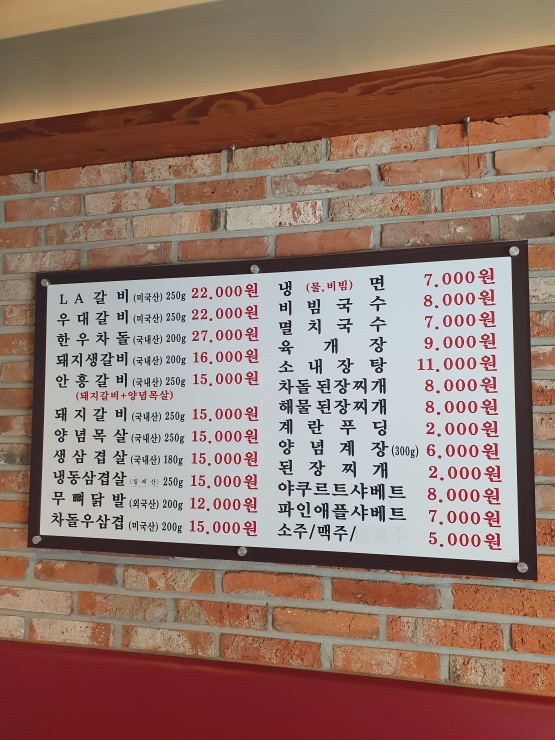 LA갈비(미국산) 250g 22.000원
우대갈비(미국산) 250g 22.000원
한우차돌(국내산) 200g 27.000원
돼지생갈비(국내산) 200g 16.000원
안흥갈비(국내산) 250g 15.000원
(돼지갈비+양념목살)
돼지갈비(국내산) 250g 15.000원
양념목살(국내산) 250g 15.000원
생삼겹살(국내산) 180g 15.000원
냉동삼겹살(칠레산) 250g 15.000원
무뼈닭발(외국산) 200g 12.000원
차돌우삼겹(미국산) 200g 15.000원
냉(물,비빔)면 7.000원
비빔국수 8.000원
멸치국수 7.000원
육개장 9.000원
소내장탕 11.000원
차돌된장찌개 8.000원
해물된장찌개 8.000원
계란푸딩 2.000원
양념게장(300g) 6.000원
된장찌개 2.000원
야쿠르트샤베트 8.000원
파인애플샤베트 7.000원
소주/맥주/ 5.000원